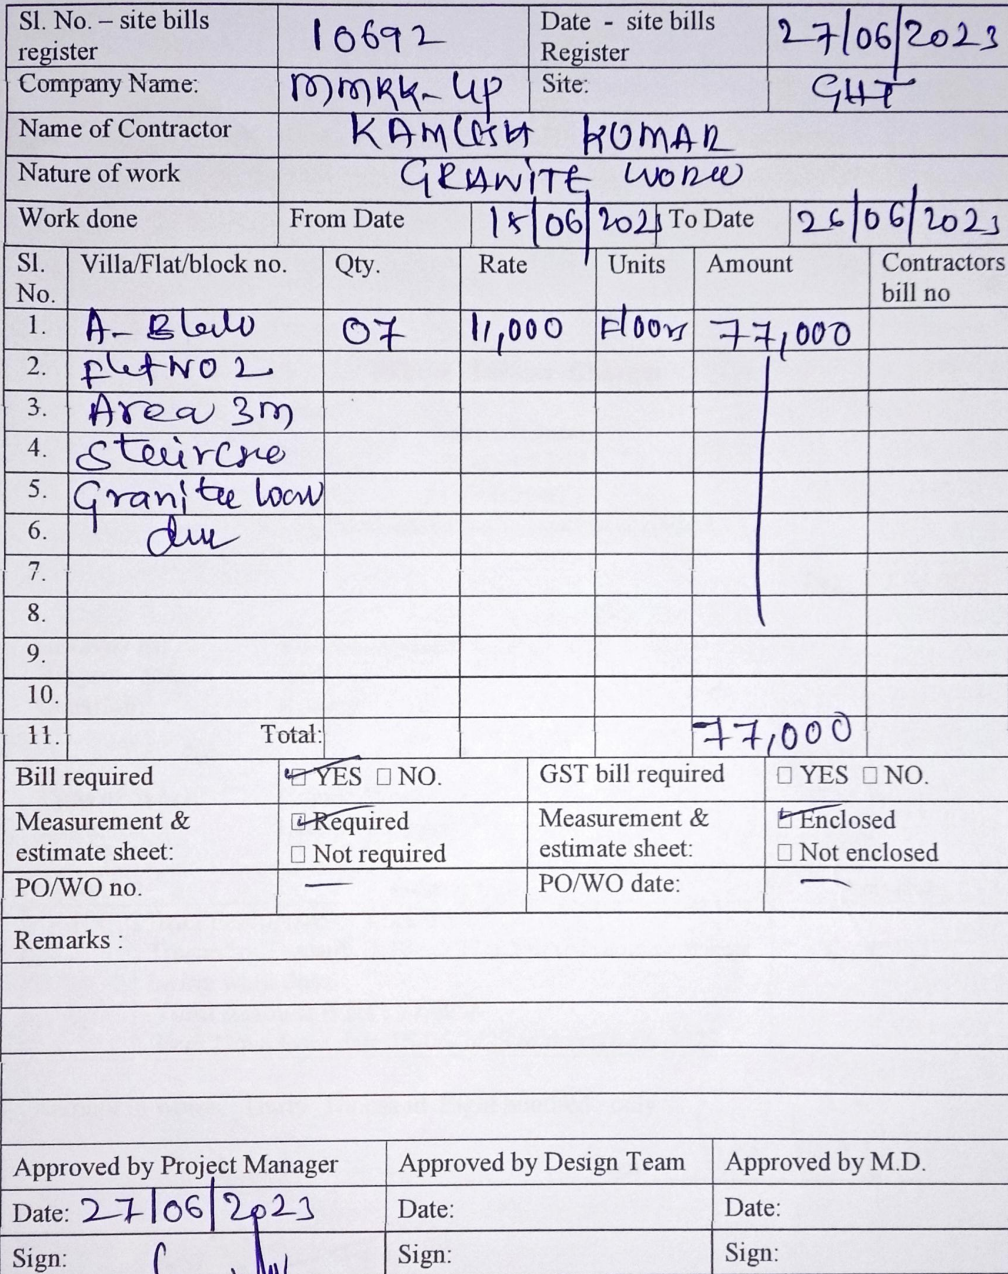 Sl. No. – site bills register 10692 Date - site bills Register 27/06/2023
Company Name: MMRK-UP Site: GHT
Name of Contractor KAMLESH KUMAR
Nature of work GRANITE WORK
Work done From Date 18/06/2023 To Date 26/06/2023
Sl. No. Villa/Flat/block no. Qty. Rate Units Amount Contractors bill no
1. A- Block 07 11,000 Floors 77,000
2. Flat NO 2
3. Area 3m
4. Staircase
5. Granite
6.
7.
8.
9.
10.
11. Total: 77,000
Bill required ☑ YES □ NO. GST bill required □ YES □ NO.
Measurement & estimate sheet: ☑ Required □ Not required Measurement & estimate sheet: ☑ Enclosed □ Not enclosed
PO/WO no. — PO/WO date: —
Remarks :
Approved by Project Manager Approved by Design Team Approved by M.D.
Date: 27/06/2023 Date: Date:
Sign: Sign: Sign: